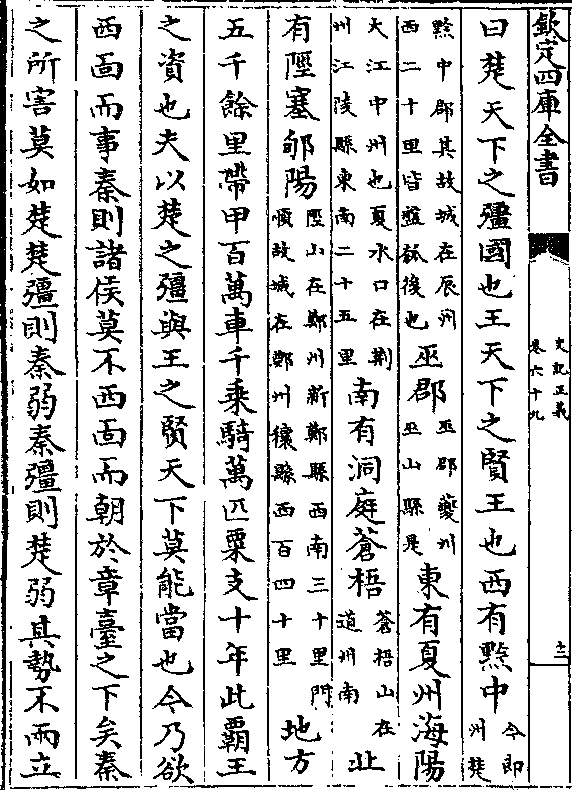 欽定四庫全書
史記正義
卷六十九
曰楚天下之彊國也王天下之賢王也西有黔中今即州楚
黔中郡其故城在辰州西二十里皆盤瓠後也巫郡巫郡夔州巫山縣是東有夏州海陽
大江中州也夏水口在荆州江陵縣東南二十五里南有洞庭蒼梧蒼梧山在道州南北
有陘塞郇陽陘山在鄭州新鄭縣西南三十里門順故城在鄭州穰縣西百四十里地方
五千餘里帶甲百萬車千乘騎萬匹粟支十年此霸王
之資也夫以楚之彊與王之賢天下莫能當也今乃欲
西面而事秦則諸侯莫不西面而朝於章臺之下矣秦
之所害莫如楚楚彊則秦弱秦彊則楚弱其勢不兩立